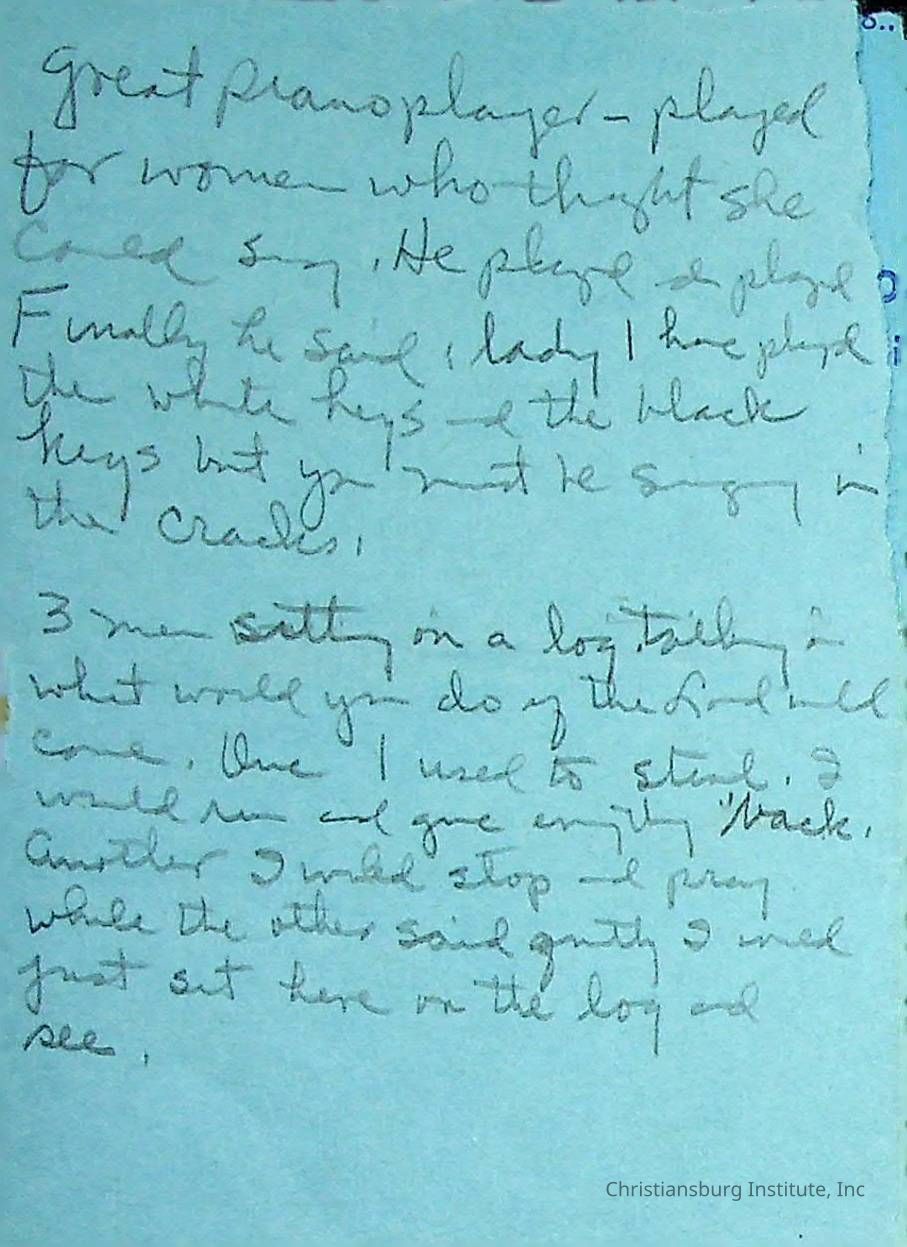 Great piano player - played
for women who thought she
could sing. He played and played
Finally he said, lady I have played
the white keys and the black
keys but you must be singing in
the cracks.
3 men sitting on a log talking on
what would you do if the Lord would
come. One I used to steal. I
would run and give everything back.
Another I would stop and pray
while the other said quietly I would
just sit here on the log and
see.
Christiansburg Institute, Inc